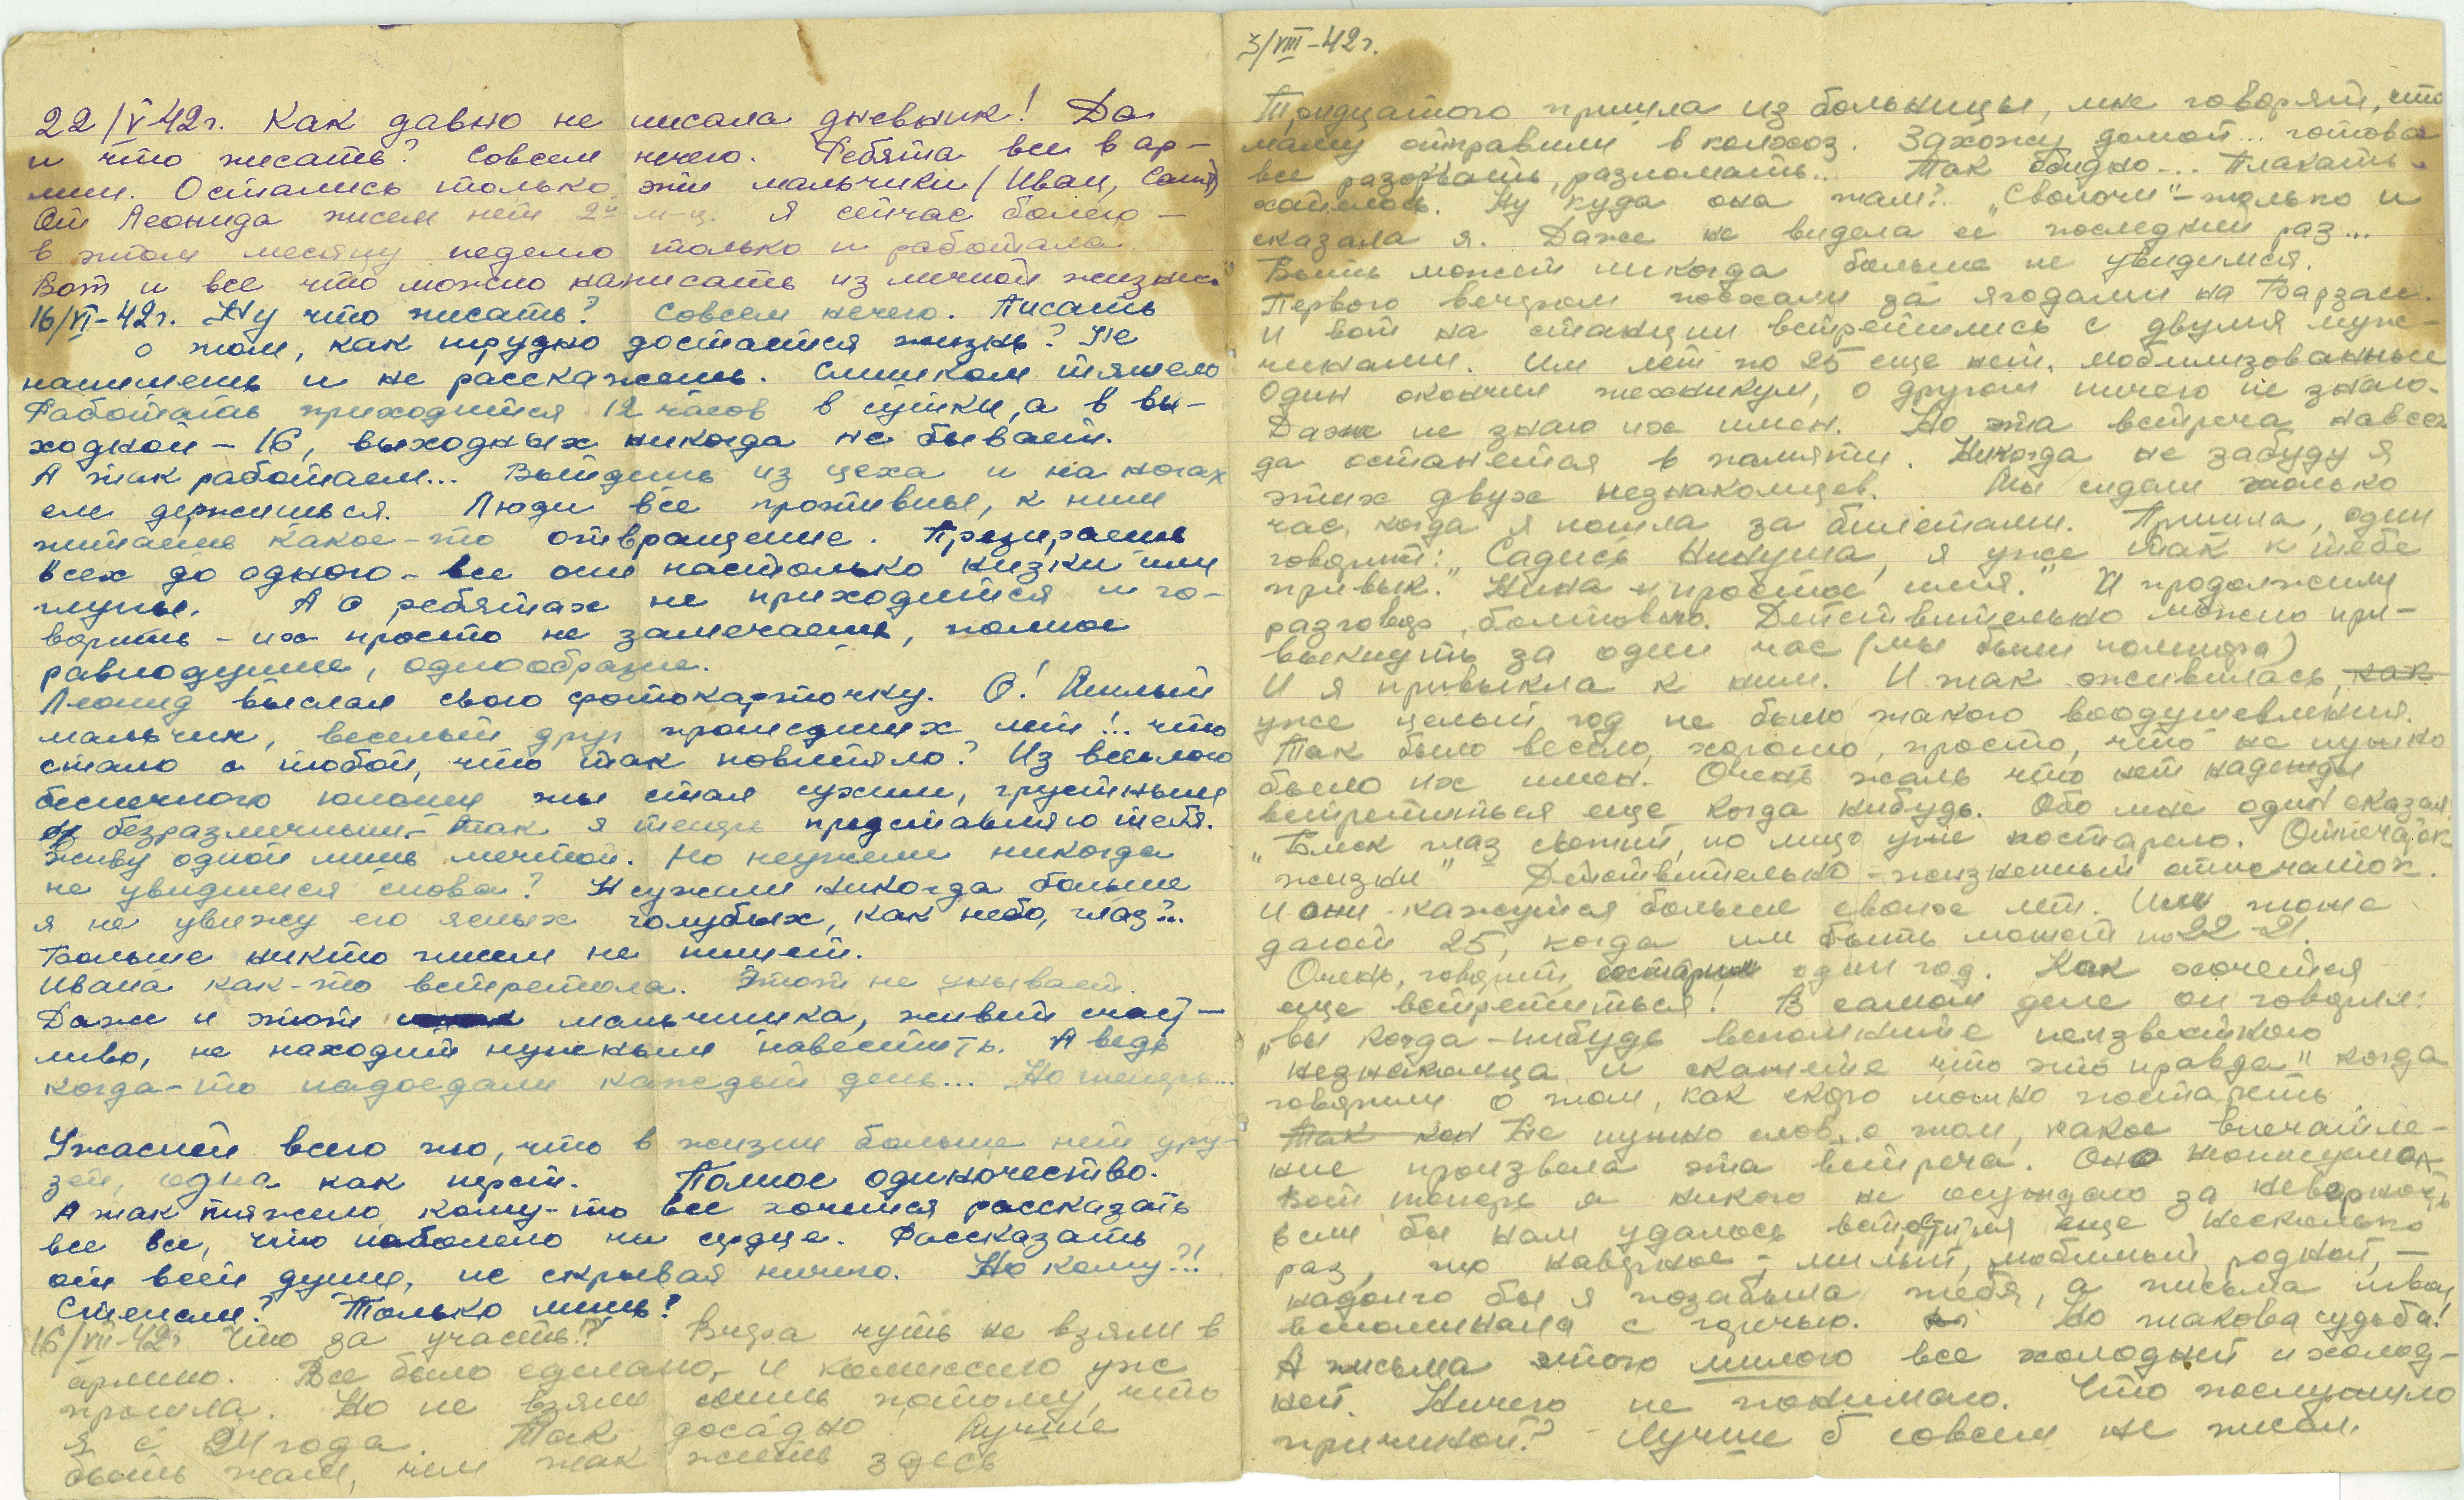 22/V-42г. Как давно не писала дневник! Да
и что писать? Совсем нечего. Ребята все в ар-
мии. Остались только эти мальчики (Иван, Саша)
От Леонида писем нет 2й м-ц. Я сейчас болею –
в этом месяце неделю только и работала.
Вот и все что можно написать из личной жизни.
16/VI-42г. Ну что писать? Совсем нечего. Писать
о том, как трудно достается жизнь? Не
напишешь и не расскажешь. Слишком тяжело
Работать приходится 12 часов в сутки, а в вы-
ходной – 16, выходных никогда не бывает.
А так работаем... Выйдешь из цеха и на ногах
еле держишься. Люди все противные, к ним
питаешь какое-то отвращение. Презираешь
всех до одного – все они настолько низки или
глупы. А о ребятах не приходится и го-
ворить – их просто не замечаешь, полное
равнодушие, однообразие.
Леонид выслал свою фотокарточку. О! Милый
мальчик, веселый друг прошедших лет!.. что
стало с тобой, что так повлияло? Из веселого
беспечного юноши ты стал сухим, грустным
безразличным – так я теперь представляю тебя.
Живу одной лишь мечтой. Но неужели никогда
не увидимся снова? Неужели никогда больше
я не увижу его ясных голубых, как небо, глаз?..
Больше никто писем не пишет.
Ивана как-то встретила. Этот не унывает.
Даже и этот мальчишка, живет счаст-
ливо, не находит нужным навестить. А ведь
когда-то надоедали каждый день... Но теперь...
Ужасней всего то, что в жизни больше нет дру-
зей, одна как перст. Полное одиночество.
А так тяжело, кому-то все хочется рассказать
все все, что наболело на сердце. Рассказать
от всей души, не скрывая ничего. Но кому?!!
Стенам? Только лишь?
16/VII-42г Что за участь!? Вчера чуть не взяли в
армию. Все было сделано, и комиссию уж
прошла. Но не взяли лишь потому, что
я с 24 года. Так досадно. Лучше
быть там, чем так жить здесь
3/VIII-42г.
Тридцатого пришла из больницы, мне говорят, что
маму отправили в колхоз. Захожу домой... готова
все разорвать, разломать... Так обидно... Плакать
хотелось. Ну куда она там? „Сволочи" – только и
сказала я. Даже не видела её последний раз...
Быть может никогда больше не увидимся.
Первого вечером поехали за ягодами на Барзас.
И вот на станции встретились с двумя муж-
чинами. Им лет по 25 еще нет, мобилизованные
Один окончил техникум, о другом ничего не знаю.
Даже не знаю их имен. Но эта встреча навсег
да останется в памяти. Никогда не забуду я
этих двух незнакомцев. Мы сидели только
час, когда я пошла за билетами. Пришла, один
говорит: „Садись Нинуша, я уже так к тебе
привык." Нина – простое имя." И продолжили
разговор, болтовню. Действительно можно при-
выкнуть за один час (мы были полтора)
И я привыкла к ним. И так оживилась, как
уже целый год не было такого воодушевления.
Так было весело, хорошо, просто, что не нужно
было их имен. Очень жаль что нет надежды
встретиться еще когда нибудь. Обо мне один сказал
„Блеск глаз свежий, но лицо уже постарело. Отпечаток
жизни" Действительно – жизненный отпечаток.
И они кажутся больше своих лет. Им тоже
дают 25, когда им быть может по 22-21.
Очень, говорит, состарил один год. Как хочется
еще встретиться! В самом деле он говорил:
„вы когда-нибудь вспомните неизвестного
незнакомца и скажете что это правда" когда
говорили о том, как скоро можно постареть
Так как Не нужно слов о том, какое впечатле-
ние произвела эта встреча. Оно
Вот теперь я никого не осуждаю за неверность
если бы нам удалось встретиться еще несколько
раз, то наверное, – милый, любимый, родной, –
надолго бы я позабыла тебя, а письма твои
вспоминала с горечью. Но такова судьба!
А письма этого милого все холодней и холод-
ней. Ничего не понимаю. Что послужило
причиной? Лучше б совсем не писал.